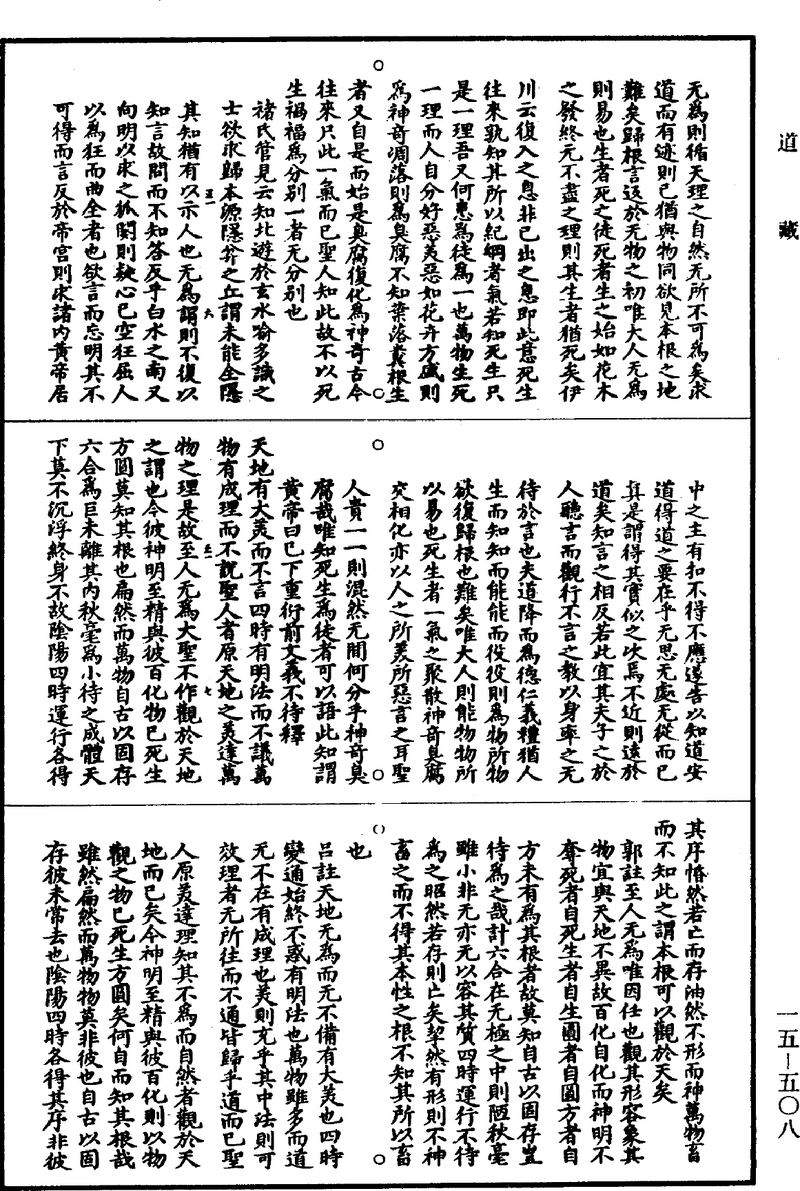 道藏
无為則循天理之自然无所不可為矣求
道而有迹則已猶與物同欲見本根之地
難矣歸根言返於无物之初唯大人无為
則易也生者死之徒死者生之始如花木
之發終元不盡之理則其生者猶死矣伊
川云復入之息非已出之息即此意死生
往來孰知其所以紀綱者氣若知死生只
是一理吾又何患為徒為一也萬物生死
一理而人自分好惡美惡如花卉方盛則
為神奇凋落則為臭腐不知葉落糞根生
者又自是而始是臭腐復化為神奇古今
往來只此一氣而已聖人知此故不以死
生禍福為分別一者无分別也
褚氏管見云知北遊於玄水喻多識之
士欲求歸本源隱弅之丘謂未能全隱
其知猶有以示人也无為謂則不復以
知言故問而不知答反乎白水之南又
向明以求之狐闋則疑心已空狂屈人
以為狂而曲全者也欲言而忘明其不
可得而言反於帝宮則求諸内黃帝居
中之主有扣不得不應遂告以知道安
道得道之要在乎无思无處无從而已
真是謂得其實似之次焉不近則遠於
道矣知言之相反若此宜其夫子之於
人聽言而觀行不言之教以身率之无
待於言也夫道降而為德仁義禮猶人
生而知知而能能而役役則為物所物
欲復歸根也難矣唯大人則能物物所
以易也死生者一氣之聚散神奇臭腐
交相化亦以人之所美所惡言之耳聖
人貴一一則混然无間何分乎神奇莫
腐哉唯知死生為徒者可以語此知謂
黃帝曰已下重衍前文義不待釋
天地有大美而不言四時有明法而不議萬
物有成理而不說聖人者原天地之美達萬
物之理是故至人无為大聖不作觀於天地
之謂也今彼神明至精與彼百化物已死生
方圓莫知其根也扁然而萬物自古以固存
六合為巨未離其内秋毫為小待之成體天
下莫不沉浮終身不故陰陽四時運行各得
其序惛然若亡而存油然不形而神萬物畜
而不知此之謂本根可以觀於天矣
郭註至人无為唯因任也觀其形容象其
物宜與天地不異故百化自化而神明不
奪死者自死生者自生圓者自圓方者自
方未有為其根者故莫知自古以固存豈
待為之哉計六合在无極之中則陋秋毫
雖小非无亦无以容其質四時運行不待
為之昭然若存則亡矣挈然有形則不神
畜之而不得其本性之根不知其所以畜
也
呂註天地无為而无不備有大美也四時
變通始終不惑有明法也萬物雖多而道
无不在有成理也美則充乎其中法則可
效理者无所往而不通皆歸乎道而已聖
人原美達理知其不為而自然者觀於天
地而已矣今神明至精與彼百化則以物
觀之物已死生方圓矣何自而知其根哉
雖然扁然而萬物物莫非彼也自古以固
存彼未常去也陰陽四時各得其序非彼
一五—五〇八